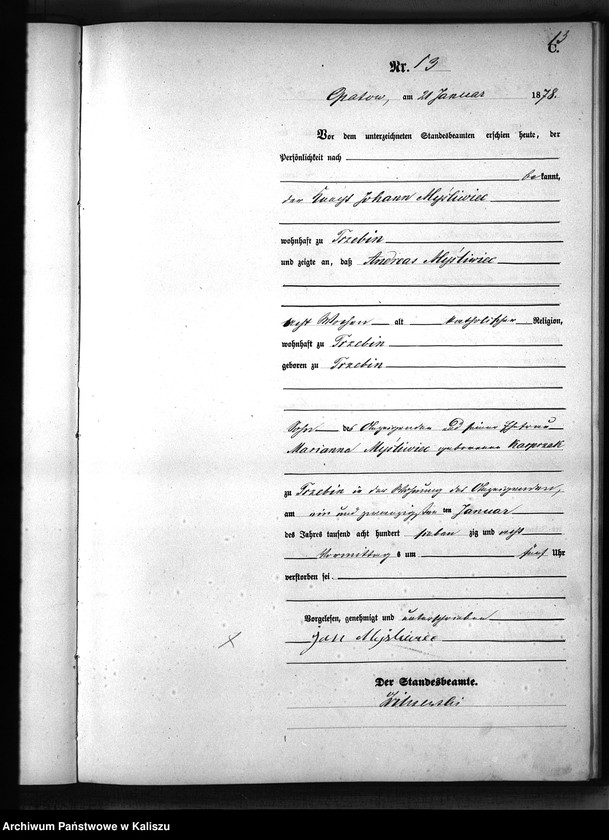 13
C.
Nr. 13
Opatow, am 21 Januar 1878.
Vor dem unterzeichneten Standesbeamten erschien heute, der
Persönlichkeit nach
be kannt,
der Knecht Johann Myśliwiec
wohnhaft zu Trzebin
und zeigte an, daß Andreas Myśliwiec
acht Wochen alt katholischer Religion,
wohnhaft zu Trzebin
geboren zu Trzebin
Sohn des Anzeigenden und seiner Ehefrau
Marianna Myśliwiec geborene Kasprzak
zu Trzebin in der Wohnung des Anzeigenden,
am ein und zwanzigsten ten Januar
des Jahres tausend acht hundert sieben zig und acht
Vormittag s um fünf Uhr
verstorben sei.
Vorgelesen, genehmigt und unterschrieben
Jan Myśliwiec
Der Standesbeamte.
Archiwum Państwowe w Kaliszu